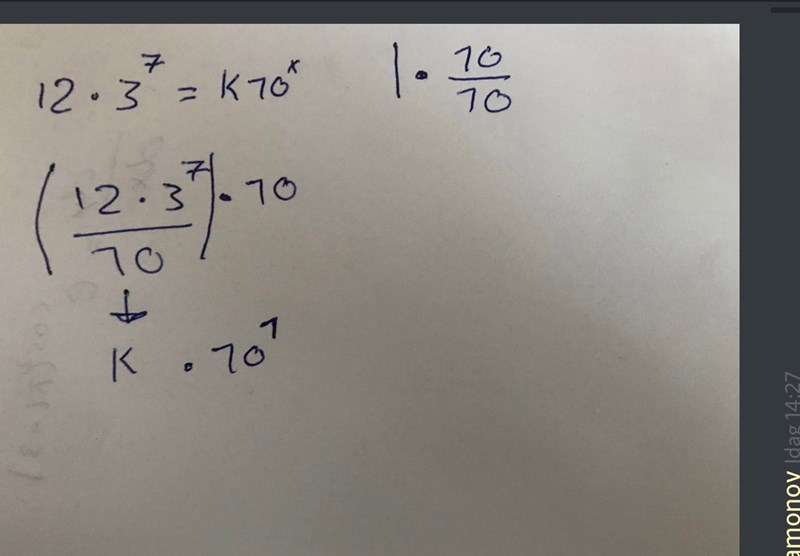 12 · 3^7 = K 10^x | · 10/10
(12 · 3^7 / 10) · 10
↓
K · 10^1
amonov Idag 14:27